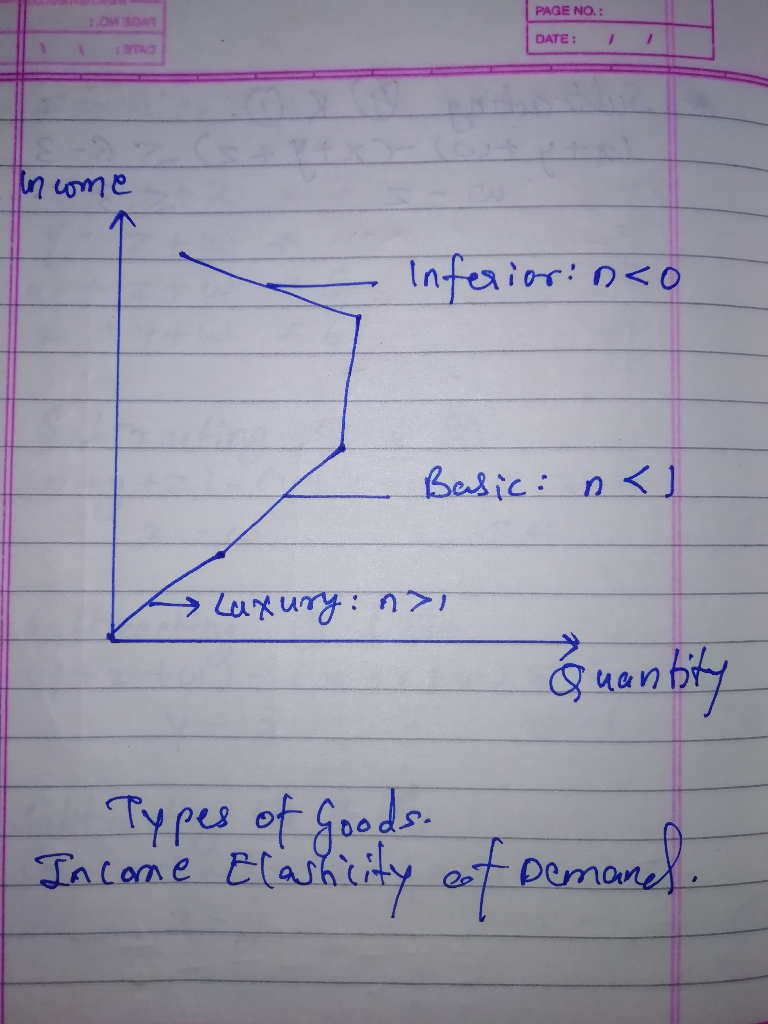 PAGE NO.:
DATE: / /
Income
Inferior: n<0
Basic: n<1
Luxury: n>1
Quantity
Types of Goods.
Income Elasticity of Demand.